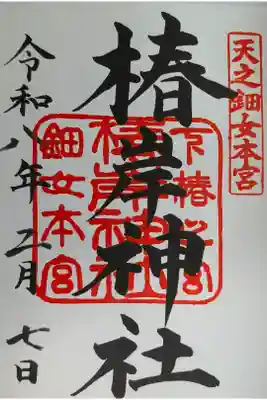 天之鈿女本宮
椿岸神社
椿岸神社
鈿女本宮
令和八年 二月 七日